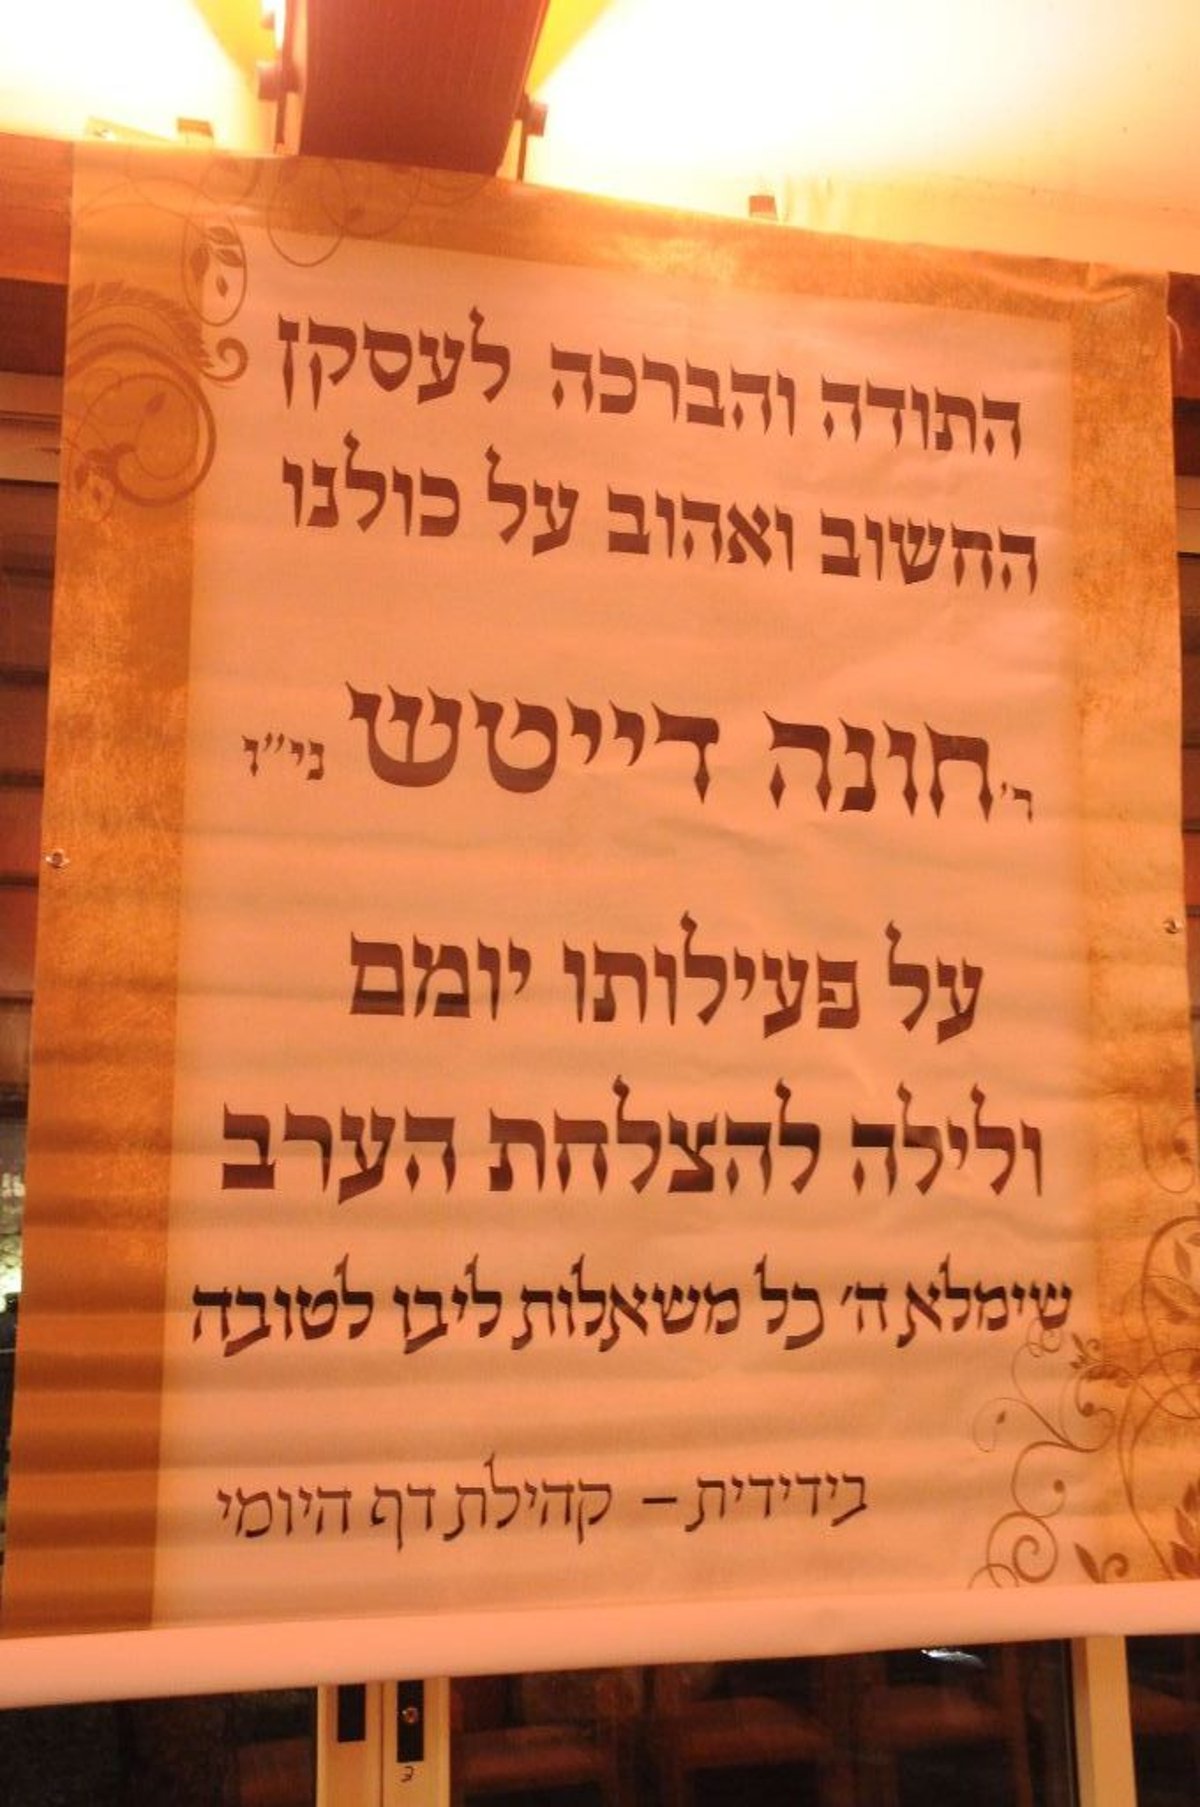 התודה והברכה לעסקן
החשוב ואהוב על כולנו
ר' חונה דייטש ני"ו
על פעילותו יומם
ולילה להצלחת הערב
שימלא ה' כל משאלות ליבו לטובה
בידידית – קהילת דף היומי
3